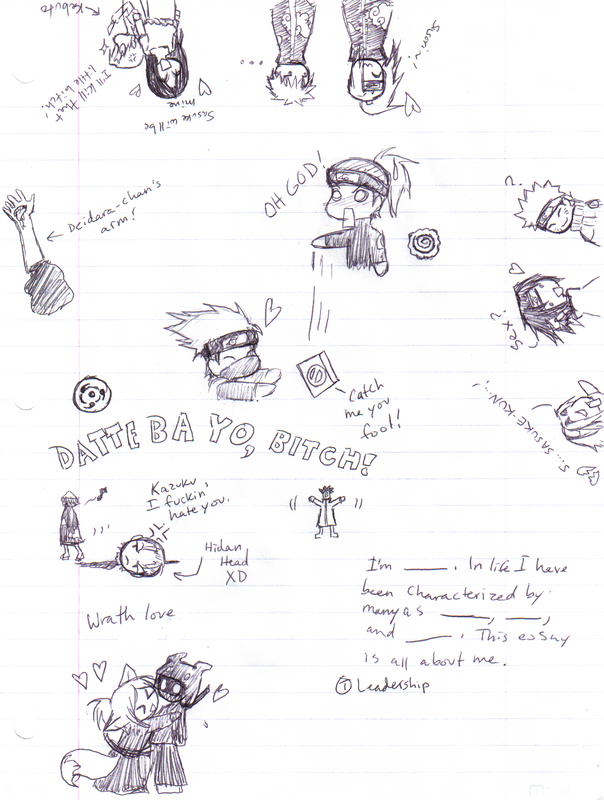 Kabuto
I'll kill that
little bitch!
Sasuke will be
mine
...
OH GOD!
Deidara-chan's
arm!
?
Sex?
Catch
me you
fool!
S... SASUKE-KUN...
DATTE BA YO, BITCH!
Kazuku
I fuckin'
hate you.
Hidan
Head
XD
Wrath love
I'm ____. In life I have
been characterized by
many as ____, ____,
and ____. This essay
is all about me.
① Leadership